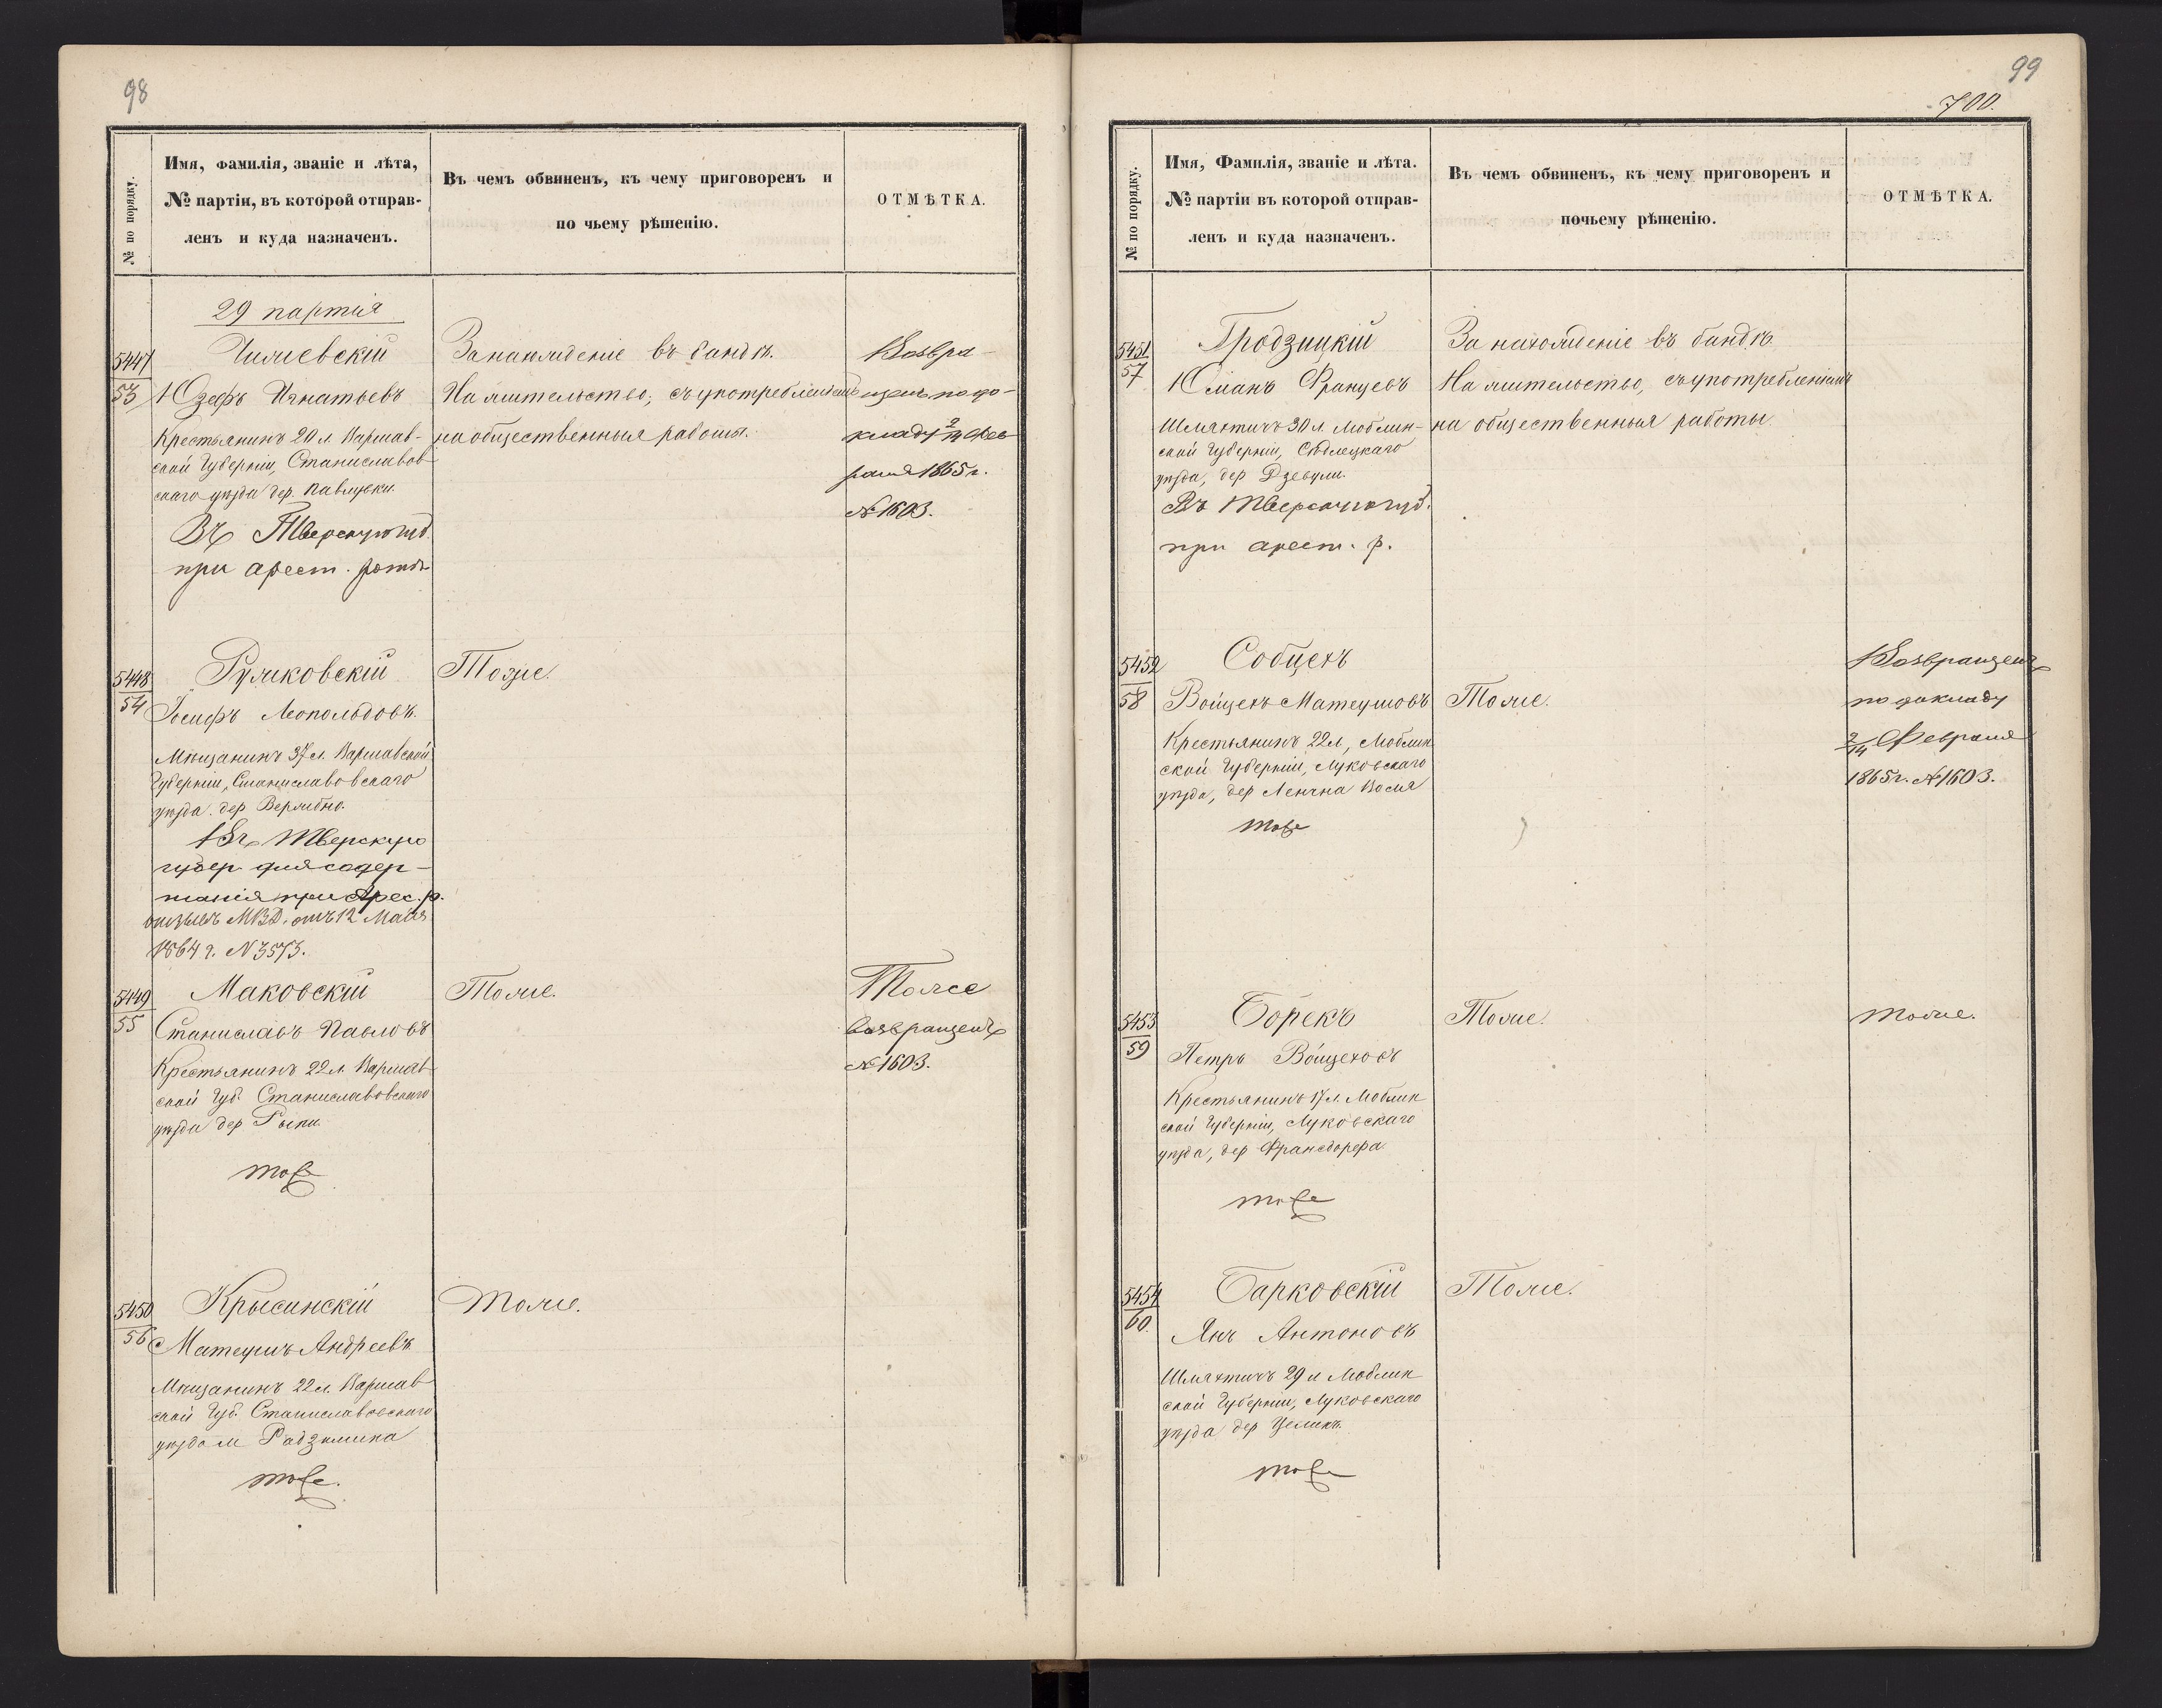 98
№ по порядку.
Имя, фамилія, званіе и лѣта,
№ партіи, въ которой отправ-
ленъ и куда назначенъ.
Въ чемъ обвиненъ, къ чему приговоренъ и
по чьему рѣшенію.
ОТМѢТКА.
29 партія
5447
53
Юзефъ Игнатьевъ
Крестьянинъ 20 л. Варшав-
ской Губерніи, Станиславов-
скаго уѣзда дер.
Въ Тверскую губ.
при арест. роты
За нахожденіе въ бандѣ.
На жительство, съ употребленіемъ
на общественныя работы.
Возвра-
щенъ по до-
кладу 2/14 Фев-
раля 1865 г.
№ 1603.
5448
54
Ручковскій
Іосифъ Леопольдовъ.
Мѣщанинъ 37 л. Варшавской
Губерніи, Станиславовскаго
уѣзда. дер.
Въ Тверскую
губер. для содер-
жанія при Арес. р.
отзывъ МВД. отъ 12 Мая
1864 г. № 3573.
Тоже.
5449
55
Маковскій
Станиславъ Павловъ
Крестьянинъ 22 л. Варшав-
ской Губ. Станиславовскаго
уѣзда дер
тоже
Тоже.
Тоже
возвращенъ
№ 1603.
5450
56
Крысинскій
Матеушъ Андреевъ
Мѣщанинъ 22 л. Варшав-
ской Губ. Станиславовскаго
уѣзда м Радзимина
тоже.
Тоже.
99
700.
№ по порядку.
Имя, Фамилія, званіе и лѣта.
№ партіи въ которой отправ-
ленъ и куда назначенъ.
Въ чемъ обвиненъ, къ чему приговоренъ и
почьему рѣшенію.
ОТМѢТКА.
5451
57
Гродзицкій
Юліанъ Францевъ
Шляхтичъ 30 л. Люблин-
ской Губерніи, Сѣдлецкаго
уѣзда, дер Дзевули.
Въ Тверскую губ.
при арест. р.
За нахожденіе въ бандѣ
На жительство, съ употребленіемъ
на общественныя работы
5452
58
Собцехъ
Войцехъ Матеушовъ
Крестьянинъ 22 л, Люблин
ской Губерніи, Луковскаго
уѣзда, дер
тоже
Тоже.
Возвращенъ
по докладу
2/14 Февраля
1865 г. № 1603.
5453
59
Борекъ
Петръ Войцеховъ
Крестьянинъ 17 л. Люблин
ской Губерніи, Луковскаго
уѣзда, дер Франсдорфа
тоже
Тоже.
тоже.
5454
60.
Барковскій
Янъ Антоновъ
Шляхтичъ 29 л Люблин
ской Губерніи, Луковскаго
уѣзда дер
тоже
Тоже.